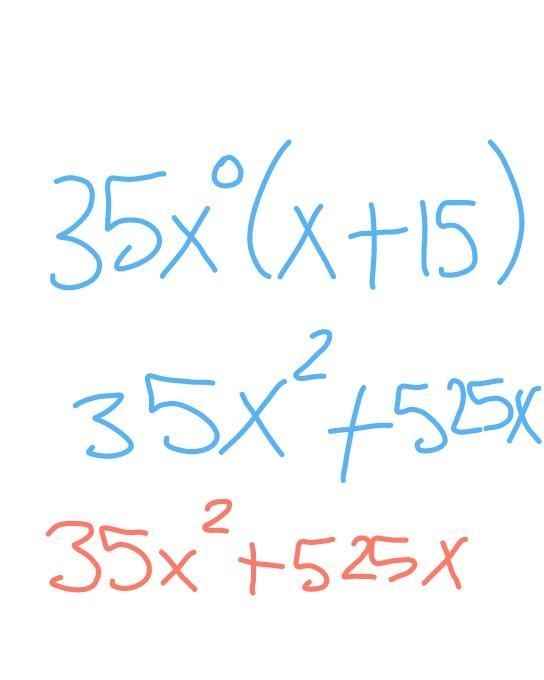 35x⁰(x+15)
35x²+525x
35x²+525x